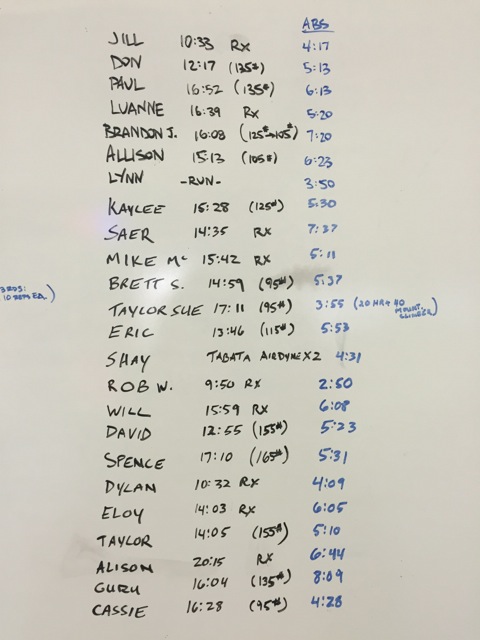 ABS
JILL 10:33 RX 4:17
DON 12:17 (135#) 5:13
PAUL 16:52 (135#) 6:13
LUANNE 16:39 RX 5:20
BRANDON J. 16:08 (125#→105#) 7:20
ALLISON 15:13 (105#) 6:23
LYNN -RUN- 3:50
KAYLEE 15:28 (125#) 5:30
SAER 14:35 RX 7:37
MIKE Mc 15:42 RX 5:11
BRETT S. 14:59 (95#) 5:37
3 RDS:
10 REPS EA.)
TAYLOR SUE 17:11 (95#) 3:55 (20 HR+40 MOUNT. CLIMBER)
ERIC 13:46 (115#) 5:53
SHAY TABATA AIRDYNE X2 4:31
ROB W. 9:50 RX 2:50
WILL 15:59 RX 6:08
DAVID 12:55 (155#) 5:23
SPENCE 17:10 (165#) 5:31
DYLAN 10:32 RX 4:09
ELOY 14:03 RX 6:05
TAYLOR 14:05 (155#) 5:10
ALISON 20:15 RX 6:44
GURU 16:04 (135#) 8:09
CASSIE 16:28 (95#) 4:28